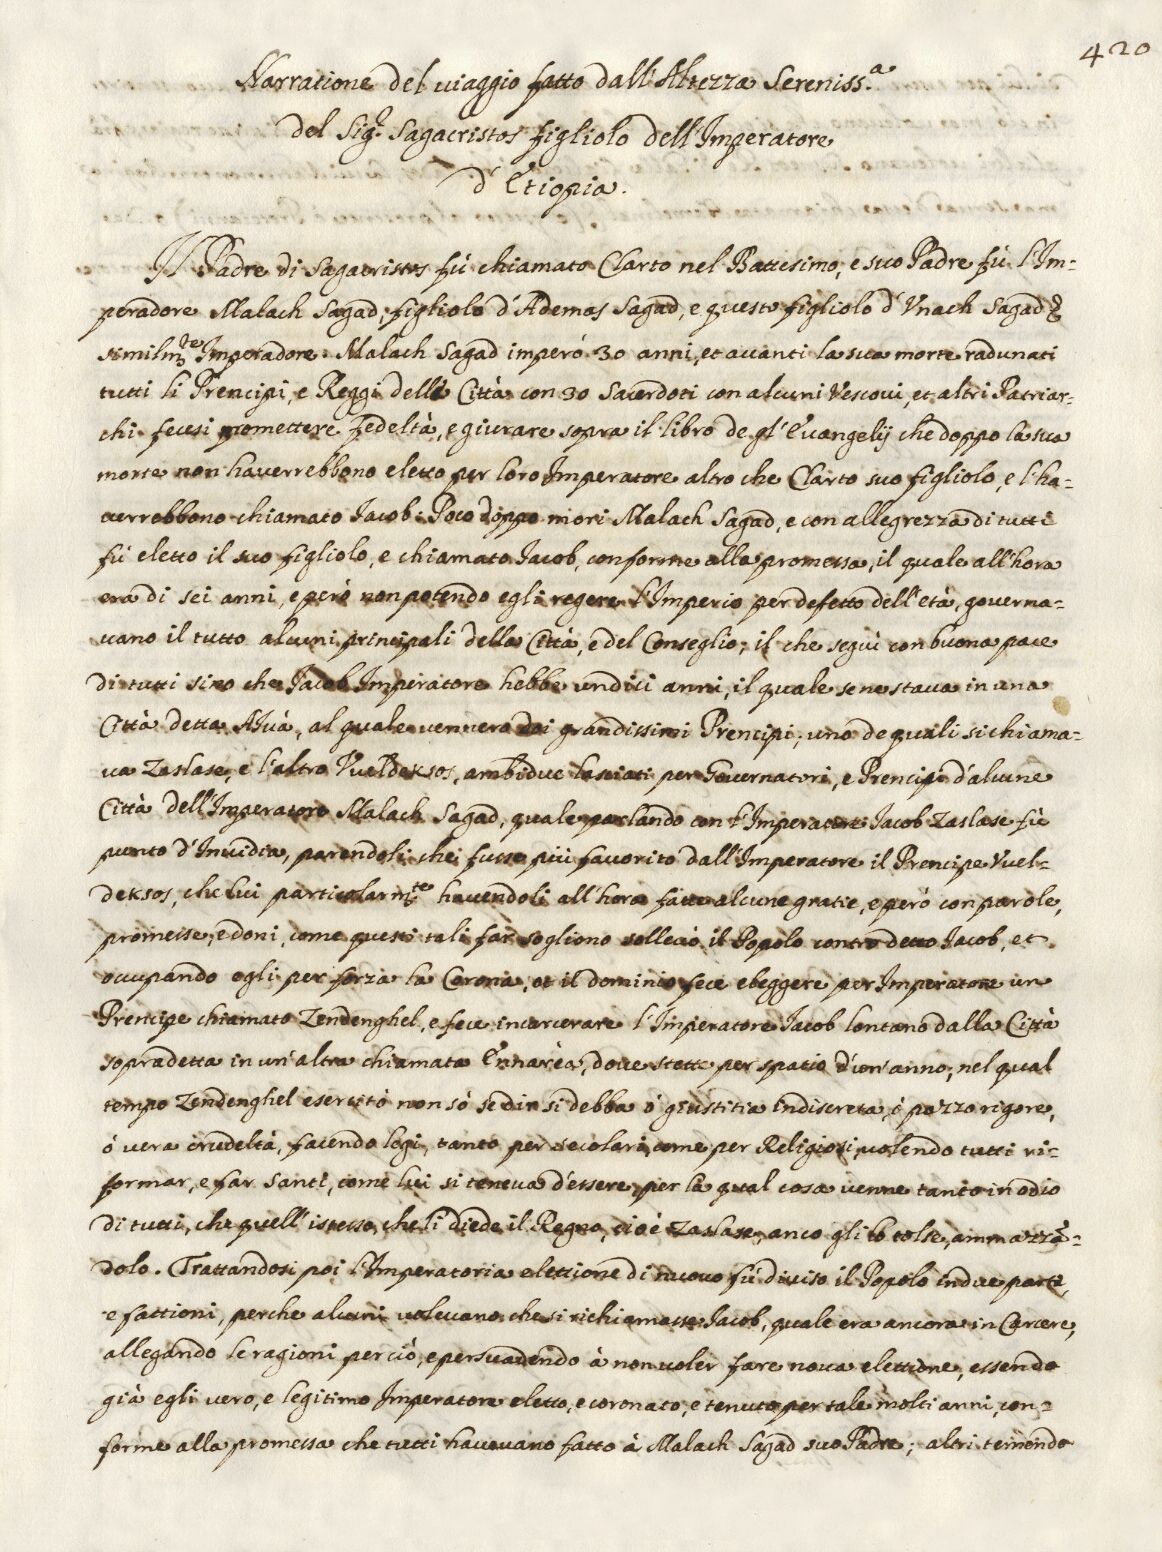 420
Narratione del viaggio fatto dall'Altezza Sereniss.a
del Sig.r Sagacristos figliolo dell'Imperatore
d'Etiopia.
Il Padre di Sagacristos fù chiamato Clarto nel Battesimo, e suo Padre fù l'Im=
peradore Malach Sagad, figliolo d'Ademas Sagad, e questo figliolo d'Vnach Sagad
similm.te Imperadore. Malach Sagad imperò 30 anni, et avanti la sua morte radunati
tutti li Prencipi, e Reggi delle Città con 30 Sacerdoti con alcuni Vescovi, et altri Patriar=
chi fecesi promettere fedeltà, e giurare sopra il libro de gl'Evangelij che doppo la sua
morte non haverrebbono eletto per loro Imperatore altro che Clarto suo figliolo, e l'ha=
verrebbono chiamato Jacob. Poco doppo morì Malach Sagad, e con allegrezza di tutti
fù eletto il suo figliolo, e chiamato Jacob, conforme alla promessa, il quale all'hora
era di sei anni, e però non potendo egli regere l'Imperio per defetto dell'età, governa=
vano il tutto alcuni principali della Città, e del Conseglio; il che seguì con buona pace
di tutti sino che Jacob Imperatore hebbe undici anni, il quale se ne stava in una
Città detta Aluà, al quale vennero doi grandissimi Prencipi, uno de quali si chiama=
va Zaslase, e l'altro Vueldeksos, ambidue lasciati per Governatori, e Prencipi d'alcune
Città dell'Imperatore Malach Sagad, quale parlando con l'Imperatore Jacob Zaslase fù
punto d'Invidia, parendoli che fusse più favorito dall'Imperatore il Prencipe Vuel=
deksos, che lui particolarm.te havendoli all'hora fatte alcune gratie, e però con parole,
promesse, e doni, come questi tali far sogliono sollevò il Popolo contro detto Jacob, et
occupando egli per forza la Corona, et il dominio fece eleggere per Imperatore un
Prencipe chiamato Zendenghel, e fece incarcerare l'Imperatore Jacob lontano dalla Città
sopradetta in un'altra chiamata Ennarèa, dove stette per spatio d'un'anno, nel qual
tempo Zendenghel esercitò non sò se dir si debba ò giustitia indiscreta, ò pazzo rigore,
ò vera crudeltà, facendo legi, tanto per secolari, come per Religiosi, volendo tutti ri=
formar, e far santi, come lui si teneva d'essere, per la qual cosa venne tanto in odio
di tutti, che quell'istesso, che li diede il Regno, cioè Zaslase, anco gli lo tolse, ammazzā=
dolo. Trattandosi poi l'Imperatoria elettione di nuovo fù diviso il Popolo in due parti,
e fattioni, perche alcuni volevano che si richiamasse Jacob, quale era ancora in Carcere,
allegando le ragioni per ciò, e persuadendo à non voler fare nova elettione, essendo
già egli vero, e legitimo Imperatore eletto, e coronato, e tenuto per tale molti anni, con=
forme alla promessa che tutti havevano fatto à Malach Sagad suo Padre; altri temendo